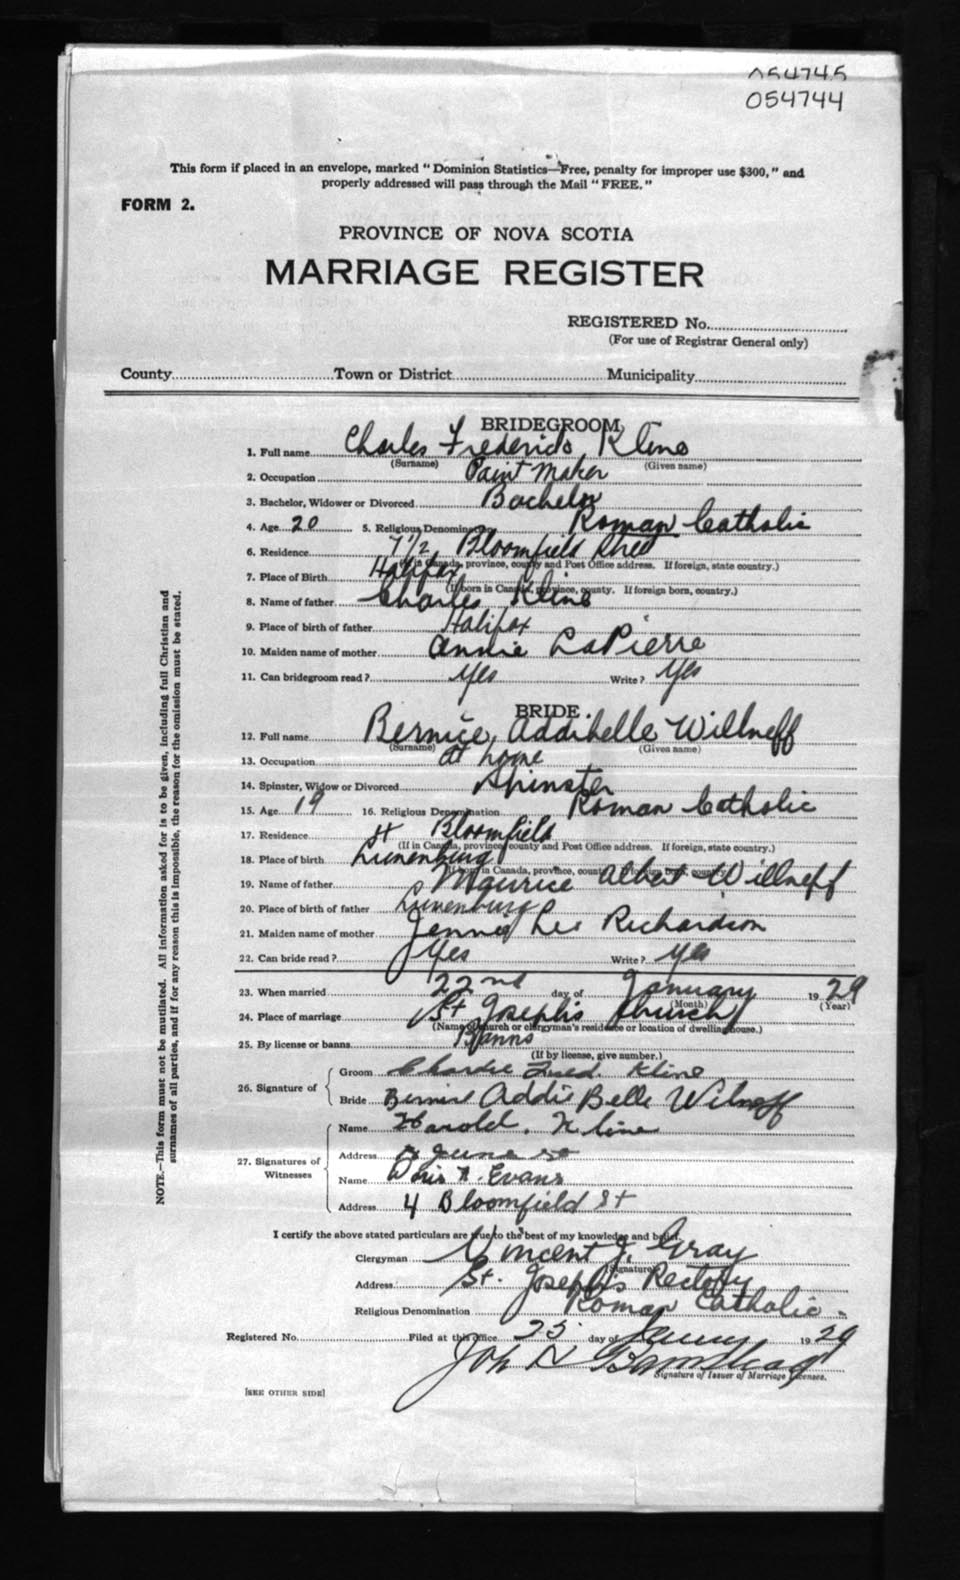 054745
054744
This form if placed in an envelope, marked "Dominion Statistics—Free, penalty for improper use $300," and
properly addressed will pass through the Mail "FREE."
FORM 2.
PROVINCE OF NOVA SCOTIA
MARRIAGE REGISTER
REGISTERED No.
(For use of Registrar General only)
County Town or District Municipality
BRIDEGROOM
1. Full name Charles Frederick Kline
(Surname) (Given name)
2. Occupation Paint Maker
3. Bachelor, Widower or Divorced Bachelor
4. Age 20 5. Religious Denomination Roman Catholic
6. Residence 7 1/2 Bloomfield
(If in Canada, province, county and Post Office address. If foreign, state country.)
7. Place of Birth Halifax
(If born in Canada, province, county. If foreign born, country.)
8. Name of father Charles Kline
9. Place of birth of father Halifax
10. Maiden name of mother Annie LaPierre
11. Can bridegroom read? Yes Write? Yes
BRIDE
12. Full name Bernice Addibelle Willneff
(Surname) (Given name)
13. Occupation at home
14. Spinster, Widow or Divorced Spinster
15. Age 19 16. Religious Denomination Roman Catholic
17. Residence 4 Bloomfield
(If in Canada, province, county and Post Office address. If foreign, state country.)
18. Place of birth Lunenburg
(If born in Canada, province, county. If foreign born, country.)
19. Name of father Maurice Albert Willneff
20. Place of birth of father Lunenburg
21. Maiden name of mother Jennie Lee Richardson
22. Can bride read? Yes Write? Yes
23. When married 22nd day of January 1929
(Month) (Year)
24. Place of marriage St Joseph's Church
(Name of church or clergyman's residence or location of dwelling house.)
25. By license or banns Banns
(If by license, give number.)
26. Signature of
Groom Charlie Fred Kline
Bride Addie Belle Wilneff
27. Signatures of Witnesses
Name Harold Kline
Address June St
Name Doris A. Evans
Address 4 Bloomfield St
I certify the above stated particulars are true to the best of my knowledge and belief.
Clergyman Vincent J. Gray
(Signature)
Address St. Joseph's Rectory
Religious Denomination Roman Catholic.
Registered No. Filed at this office 25 day of 1929
Signature of Issuer of Marriage Licenses.
[SEE OTHER SIDE]
NOTE.—This form must not be mutilated. All information asked for is to be given, including full Christian and
surnames of all parties, and if for any reason this is impossible, the reason for the omission must be stated.